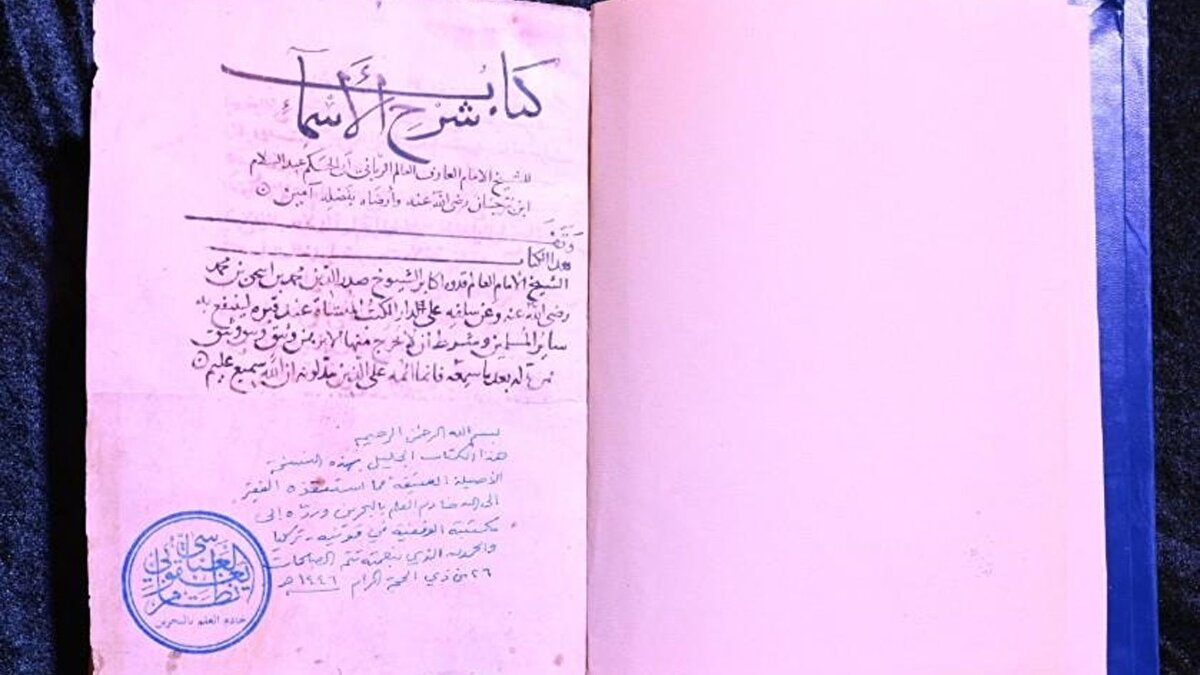 كتاب شرح الأسماء
للشيخ الامام العارف العالم الربانى أبى الحكم عبد السلام
ابن برجان رضى الله عنه وأرضاه بفضله آمين
وقف
هذا الكتاب
الشيخ الامام العالم قدوة اكابر الشيوخ صدر الدين محمد بن اسحق بن محمد
رضى الله عنه وعن سلفه على الدار الكتب المنشاة عند قبره لينتفع به
سائر المسلمين وشرط أن لا يخرج منها الا برهن وثيق
فمن بدله بعدما سمعه فانما اثمه على الذين يبدلونه ان الله سميع عليم
بسم الله الرحمن الرحيم
هذا الكتاب الجليل بهذه النسخة
الأصيلة العتيقة مما استنقذه الفقير
إلى الله خادم العلم بالبحرين ورده إلى
مكتبته الوقفية في قونية - تركيا
والحمد لله الذي بنعمته تتم الصالحات
٢٦ من ذي الحجة الحرام ١٤٤٦ هـ
العباسي
يعقوبي
نظام
خادم العلم بالبحرين